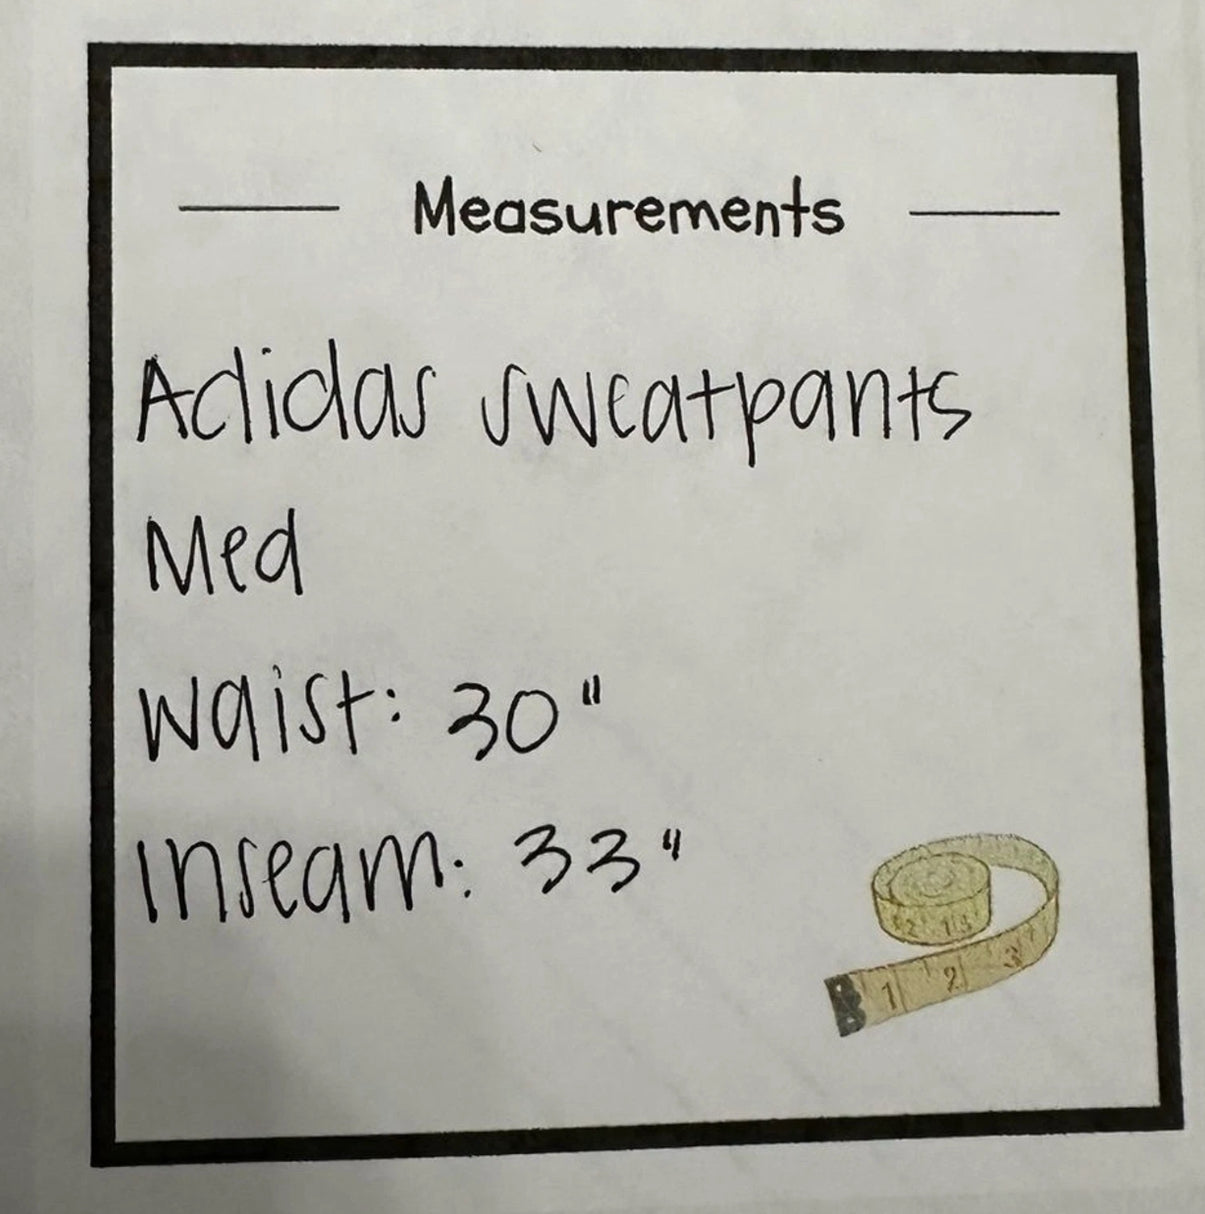 Measurements
Adidas sweatpants
Med
Waist: 30"
Inseam: 33"
1 2 3